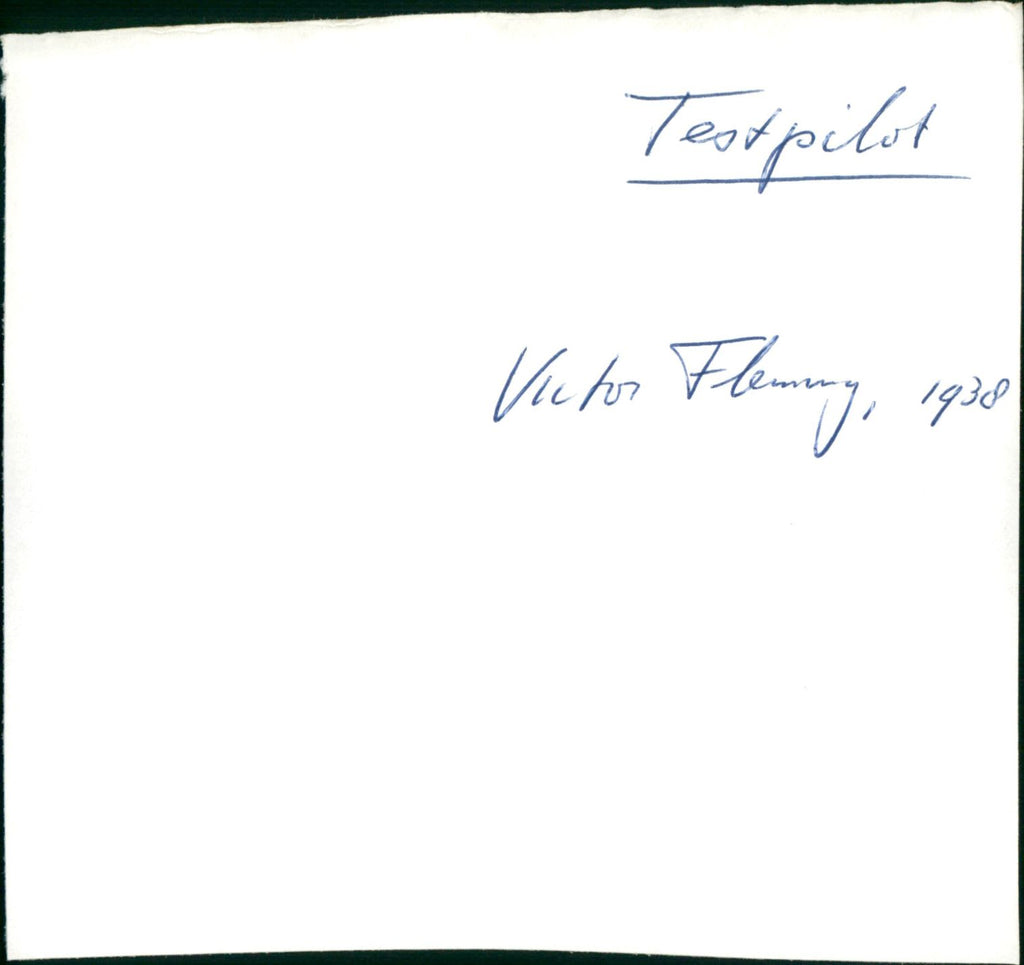 Testpilot
Victor Fleming, 1938